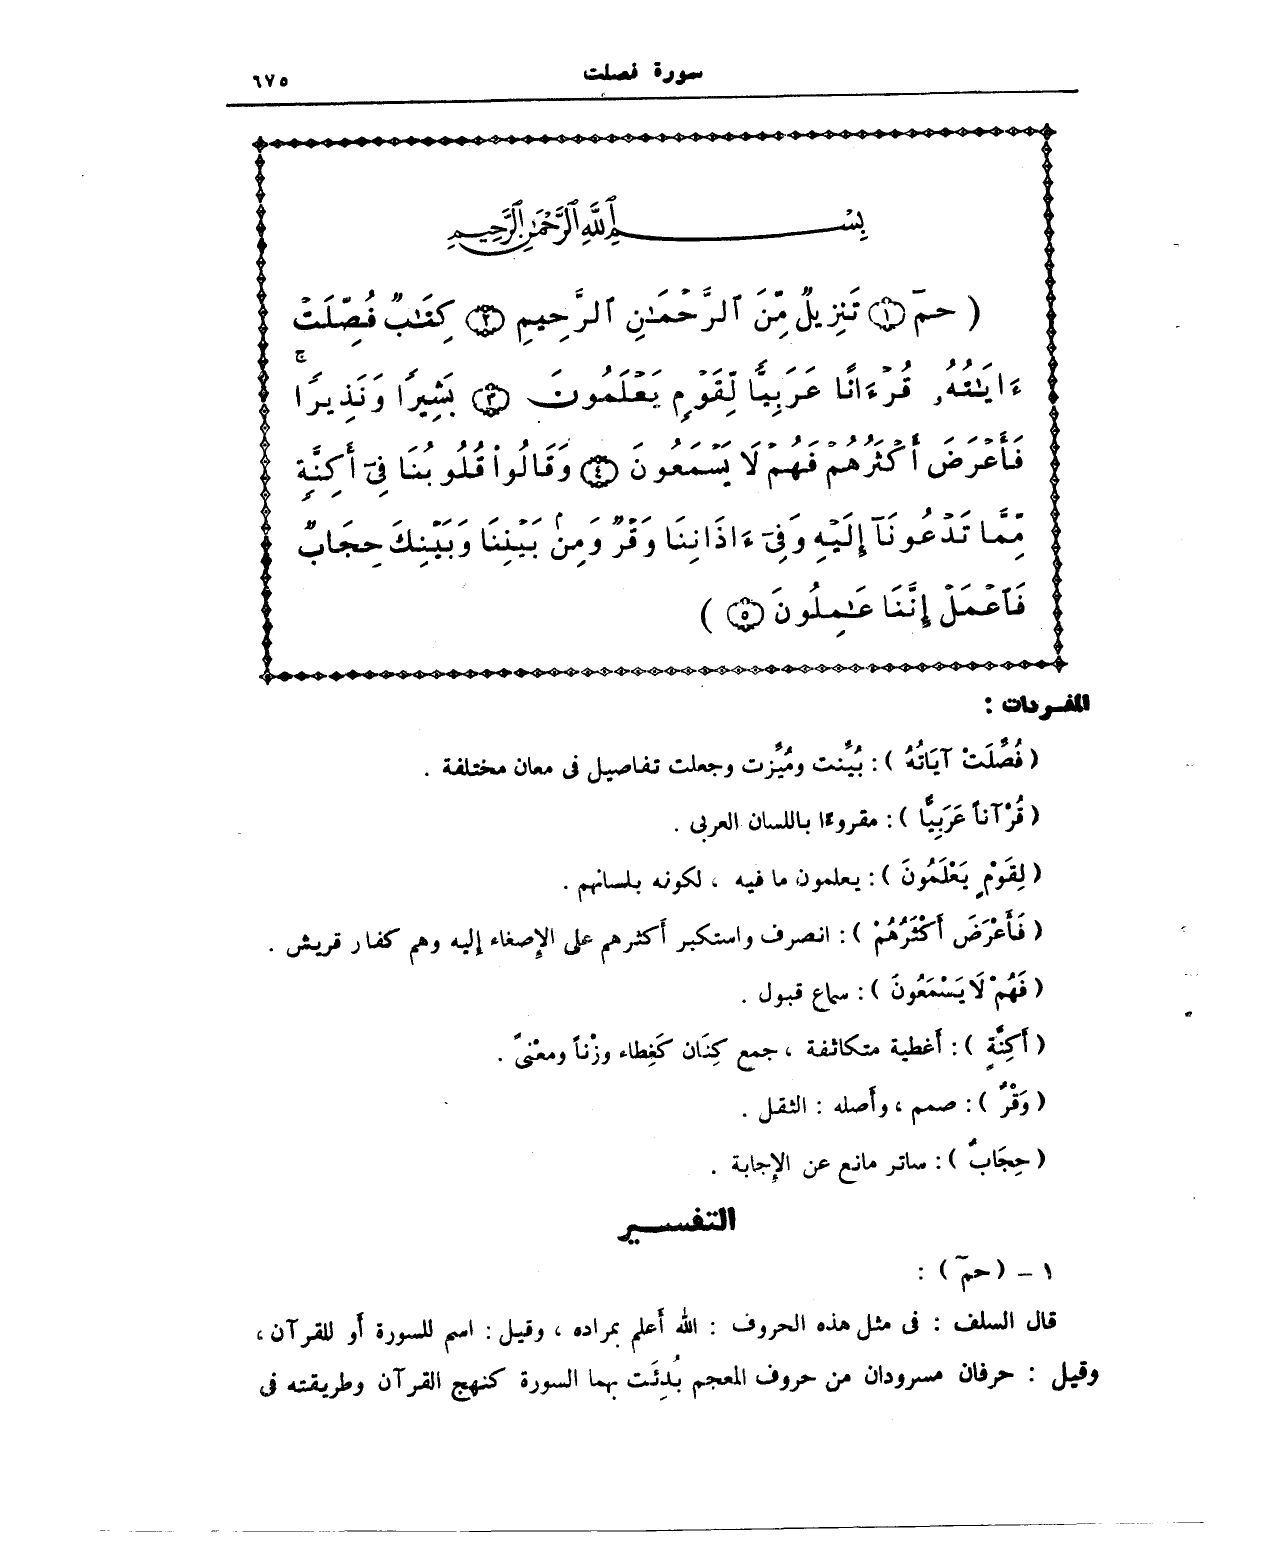 سورة فصلت ٦٧٥
بِسْمِ ٱللَّهِ ٱلرَّحْمَٰنِ ٱلرَّحِيمِ
( حمٓ ١ تَنزِيلٌ مِّنَ ٱلرَّحْمَٰنِ ٱلرَّحِيمِ ٢ كِتَٰبٌ فُصِّلَتْ
ءَايَٰتُهُۥ قُرْءَانًا عَرَبِيًّا لِّقَوْمٍ يَعْلَمُونَ ٣ بَشِيرًا وَنَذِيرًا
فَأَعْرَضَ أَكْثَرُهُمْ فَهُمْ لَا يَسْمَعُونَ ٤ وَقَالُوا۟ قُلُوبُنَا فِىٓ أَكِنَّةٍ
مِّمَّا تَدْعُونَآ إِلَيْهِ وَفِىٓ ءَاذَانِنَا وَقْرٌ وَمِنۢ بَيْنِنَا وَبَيْنِكَ حِجَابٌ
فَٱعْمَلْ إِنَّنَا عَٰمِلُونَ ٥ )
المفردات :
( فُصِّلَتْ آيَاتُهُ ) : بُيِّنت ومُيِّزت وجعلت تفاصيل فى معان مختلفة .
( قُرْآناً عَرَبِيًّا ) : مقروءًا باللسان العربى .
( لِقَوْمٍ يَعْلَمُونَ ) : يعلمون ما فيه ، لكونه بلسانهم .
( فَأَعْرَضَ أَكْثَرُهُمْ ) : انصرف واستكبر أكثرهم على الإصغاء إليه وهم كفار قريش .
( فَهُمْ لَا يَسْمَعُونَ ) : سماع قبول .
( أَكِنَّةٍ ) : أغطية متكاثفة ، جمع كِنَان كَغِطاء وزْناً ومعْنىً .
( وَقْرٌ ) : صمم ، وأصله : الثقل .
( حِجَابٌ ) : ساتر مانع عن الإجابة .
التفسير
١ – ( حمٓ ) :
قال السلف : فى مثل هذه الحروف : الله أعلم بمراده ، وقيل : اسم للسورة أو للقرآن ،
وقيل : حرفان مسرودان من حروف المعجم بُدِئَت بهما السورة كنهج القرآن وطريقته فى